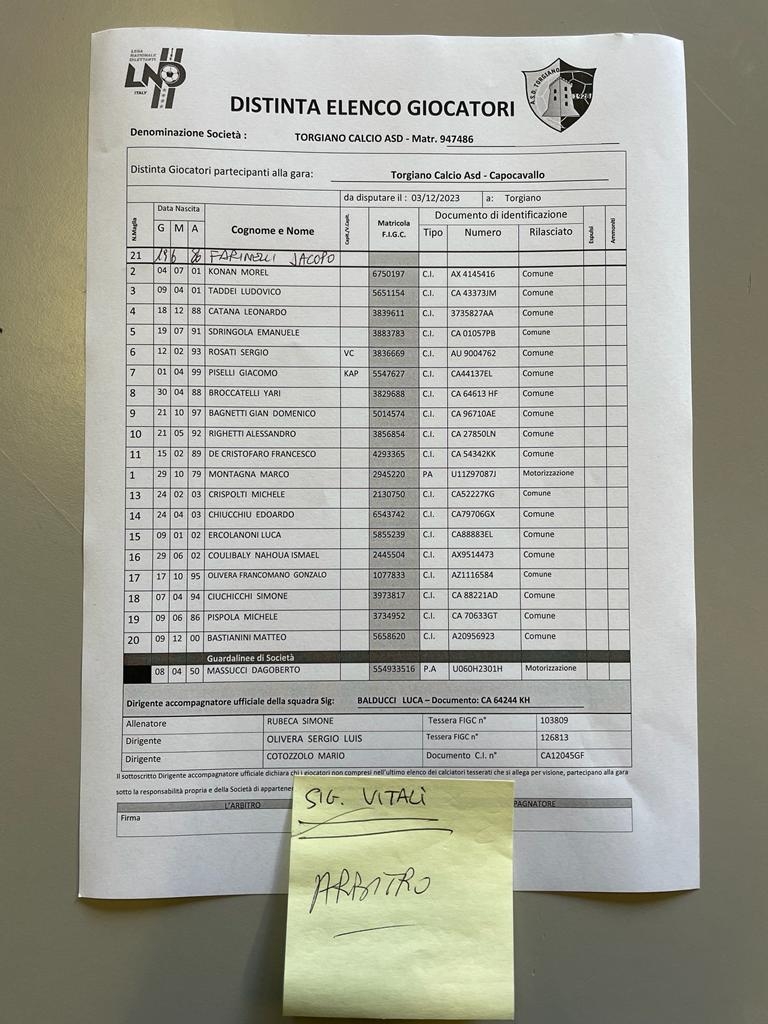 LEGA NAZIONALE DILETTANTI
LND
ITALY
A.S.D. TORGIANO
1928
DISTINTA ELENCO GIOCATORI
Denominazione Società : TORGIANO CALCIO ASD - Matr. 947486
Distinta Giocatori partecipanti alla gara: Torgiano Calcio Asd - Capocavallo
da disputare il : 03/12/2023 a: Torgiano
N.Maglia Data Nascita G M A Cognome e Nome Capit./V.Capit. Matricola F.I.G.C. Documento di identificazione Tipo Numero Rilasciato Espulsi Ammoniti
21 19 6 86 FARINELLI JACOPO
2 04 07 01 KONAN MOREL 6750197 C.I. AX 4145416 Comune
3 09 04 01 TADDEI LUDOVICO 5651154 C.I. CA 43373JM Comune
4 18 12 88 CATANA LEONARDO 3839611 C.I. 3735827AA Comune
5 19 07 91 SDRINGOLA EMANUELE 3883783 C.I. CA 01057PB Comune
6 12 02 93 ROSATI SERGIO VC 3836669 C.I. AU 9004762 Comune
7 01 04 99 PISELLI GIACOMO KAP 5547627 C.I. CA44137EL Comune
8 30 04 88 BROCCATELLI YARI 3829688 C.I. CA 64613 HF Comune
9 21 10 97 BAGNETTI GIAN DOMENICO 5014574 C.I. CA 96710AE Comune
10 21 05 92 RIGHETTI ALESSANDRO 3856854 C.I. CA 27850LN Comune
11 15 02 89 DE CRISTOFARO FRANCESCO 4293365 C.I. CA 54342KK Comune
1 29 10 79 MONTAGNA MARCO 2945220 PA U11Z97087J Motorizzazione
13 24 02 03 CRISPOLTI MICHELE 2130750 C.I. CA52227KG Comune
14 24 04 03 CHIUCCHIU EDOARDO 6543742 C.I. CA79706GX Comune
15 09 01 02 ERCOLANONI LUCA 5855239 C.I. CA88883EL Comune
16 29 06 02 COULIBALY NAHOUA ISMAEL 2445504 C.I. AX9514473 Comune
17 17 10 95 OLIVERA FRANCOMANO GONZALO 1077833 C.I. AZ1116584 Comune
18 07 04 94 CIUCHICCHI SIMONE 3973817 C.I. CA 88221AD Comune
19 09 06 86 PISPOLA MICHELE 3734952 C.I. CA 70633GT Comune
20 09 12 00 BASTIANINI MATTEO 5658620 C.I. A20956923 Comune
Guardalinee di Società
08 04 50 MASSUCCI DAGOBERTO 554933516 P.A U060H2301H Motorizzazione
Dirigente accompagnatore ufficiale della squadra Sig: BALDUCCI LUCA – Documento: CA 64244 KH
Allenatore RUBECA SIMONE Tessera FIGC n° 103809
Dirigente OLIVERA SERGIO LUIS Tessera FIGC n° 126813
Dirigente COTOZZOLO MARIO Documento C.I. n° CA12045GF
Il sottoscritto Dirigente accompagnatore ufficiale dichiara chi i giocatori non compresi nell'ultimo elenco dei calciatori tesserati che si allega per visione, partecipano alla gara
sotto la responsabilità propria e della Società di appartene
L'ARBITRO PAGNATORE
Firma
SIG. VITALI
ARBITRO